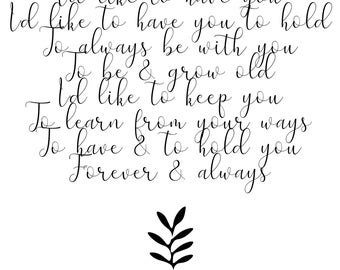 I'd like to have you
I'd like to have you to hold
To always be with you
To be & grow old
I'd like to keep you
To learn from your ways
To have & to hold you
Forever & always